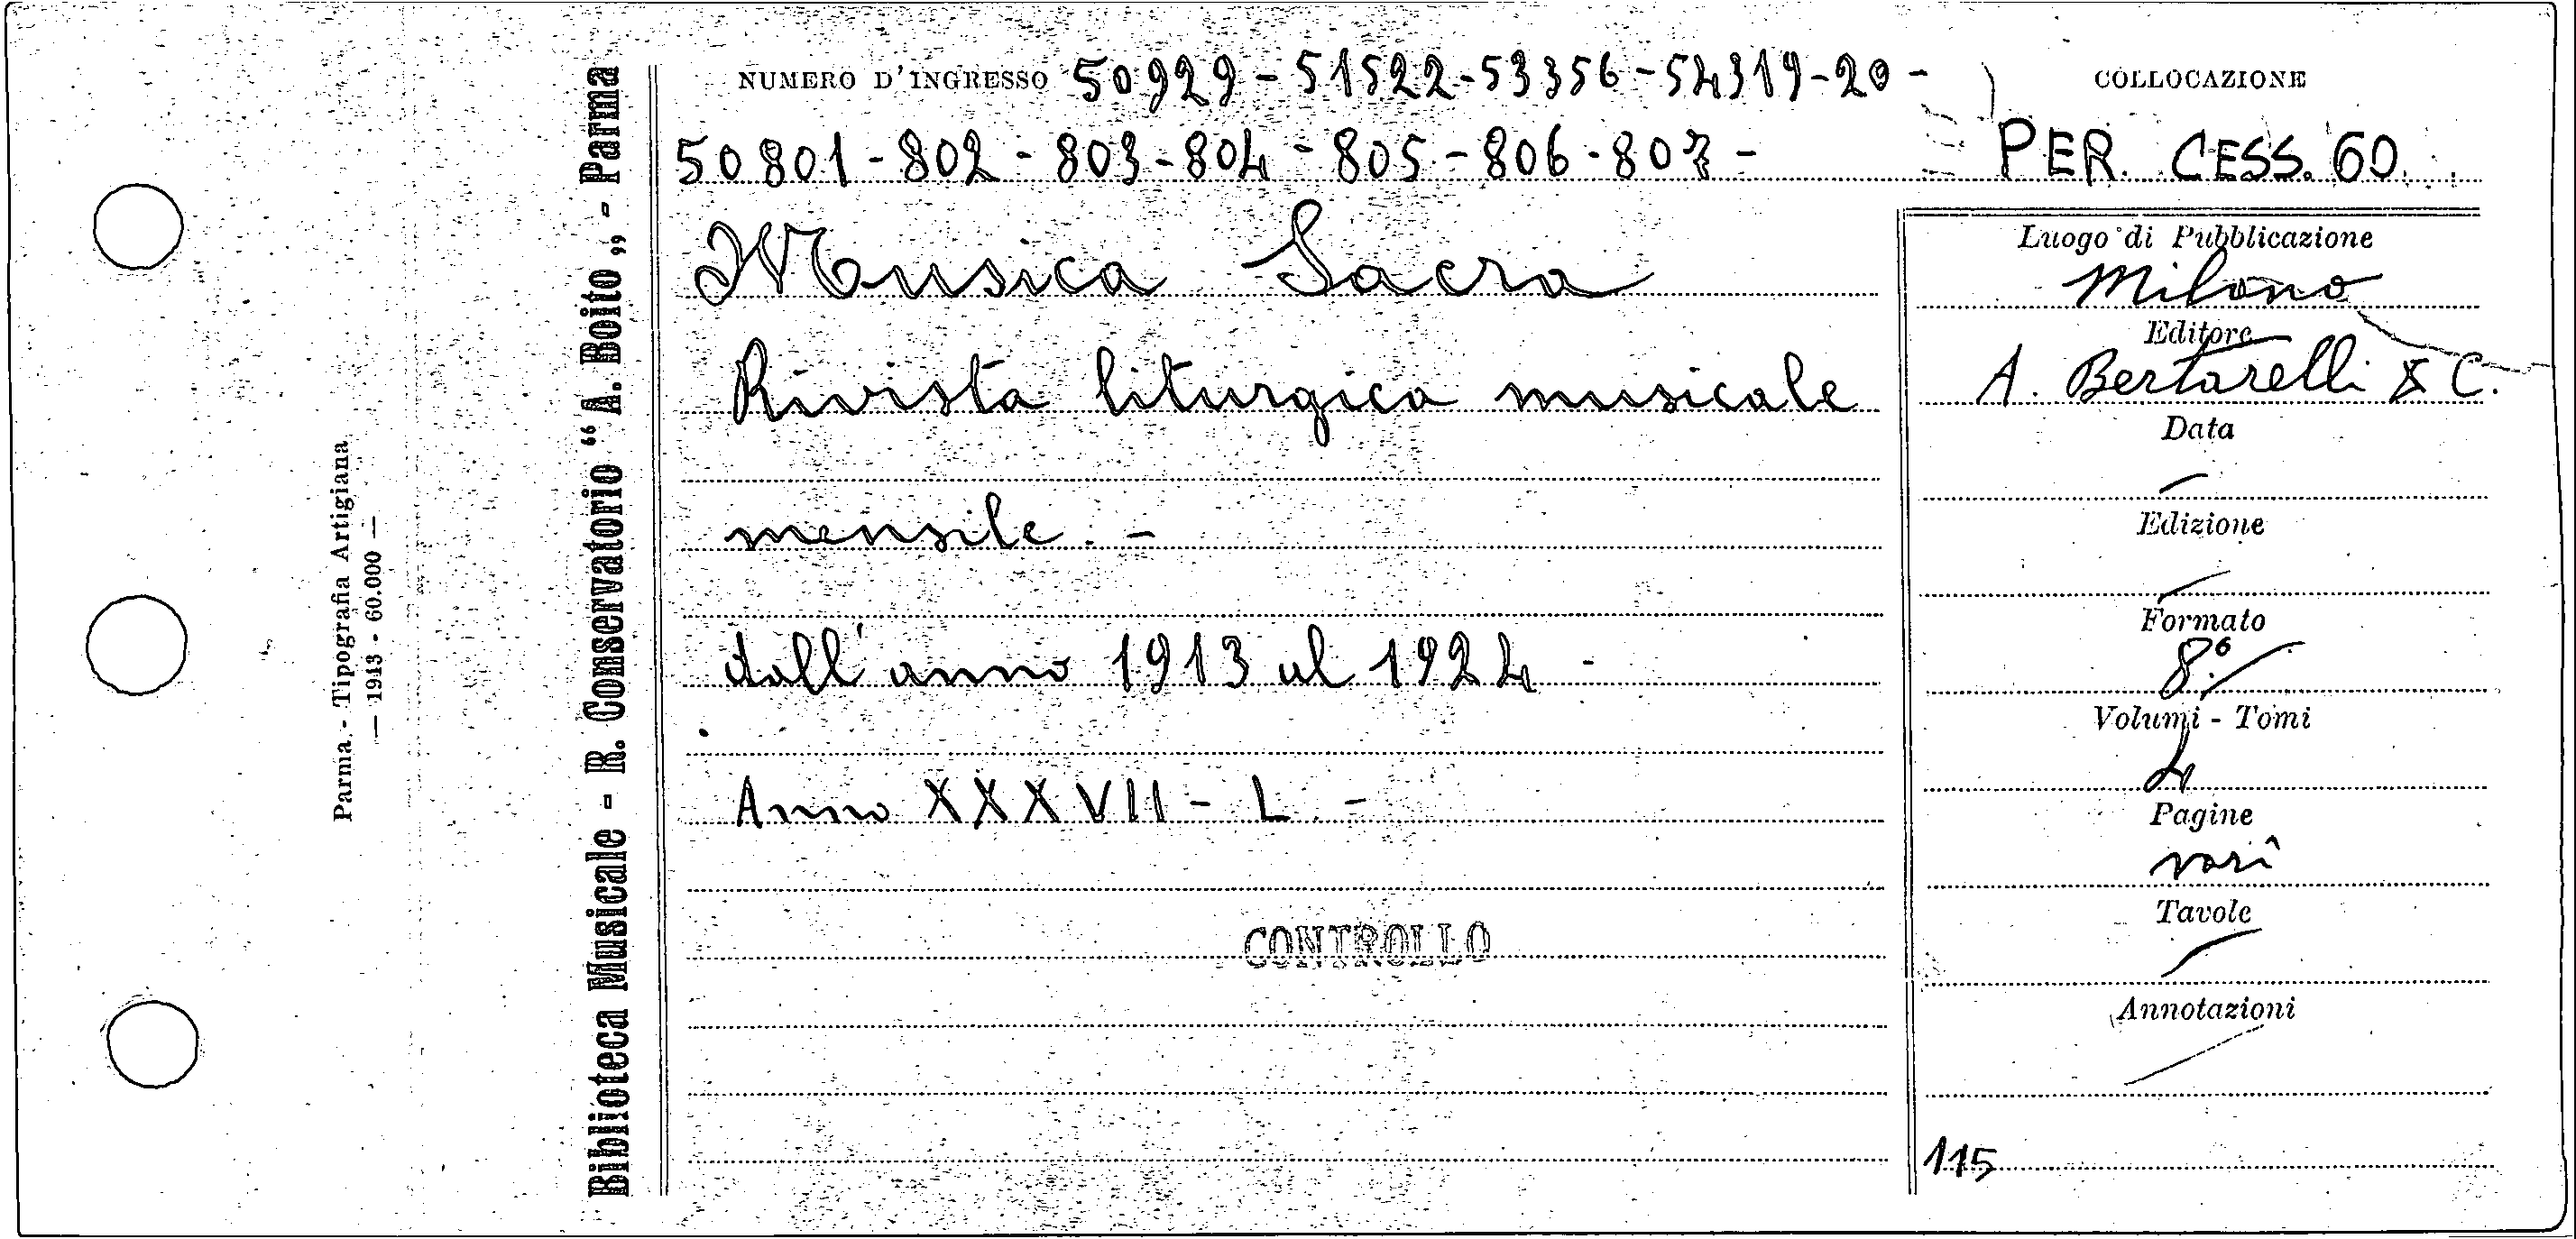 Parma - Tipografia Artigiana
— 1943 - 60.000 —
Biblioteca Musicale - R. Conservatorio “A. Boito„ - Parma
NUMERO D'INGRESSO 50929 - 51522 - 53356 - 54319 - 20 -
50801 - 802 - 803 - 804 - 805 - 806 - 807 -
Musica Sacra
Rivista liturgica musicale
mensile. -
dall'anno 1913 al 1924 -
Anno XXXVII - L. -
CONTROLLO
COLLOCAZIONE
PER. CESS. 60
Luogo di Pubblicazione
Milano
Editore
A. Bertarelli & C.
Data
Edizione
Formato
8º
Volumi - Tomi
4
Pagine
varî
Tavole
Annotazioni
115